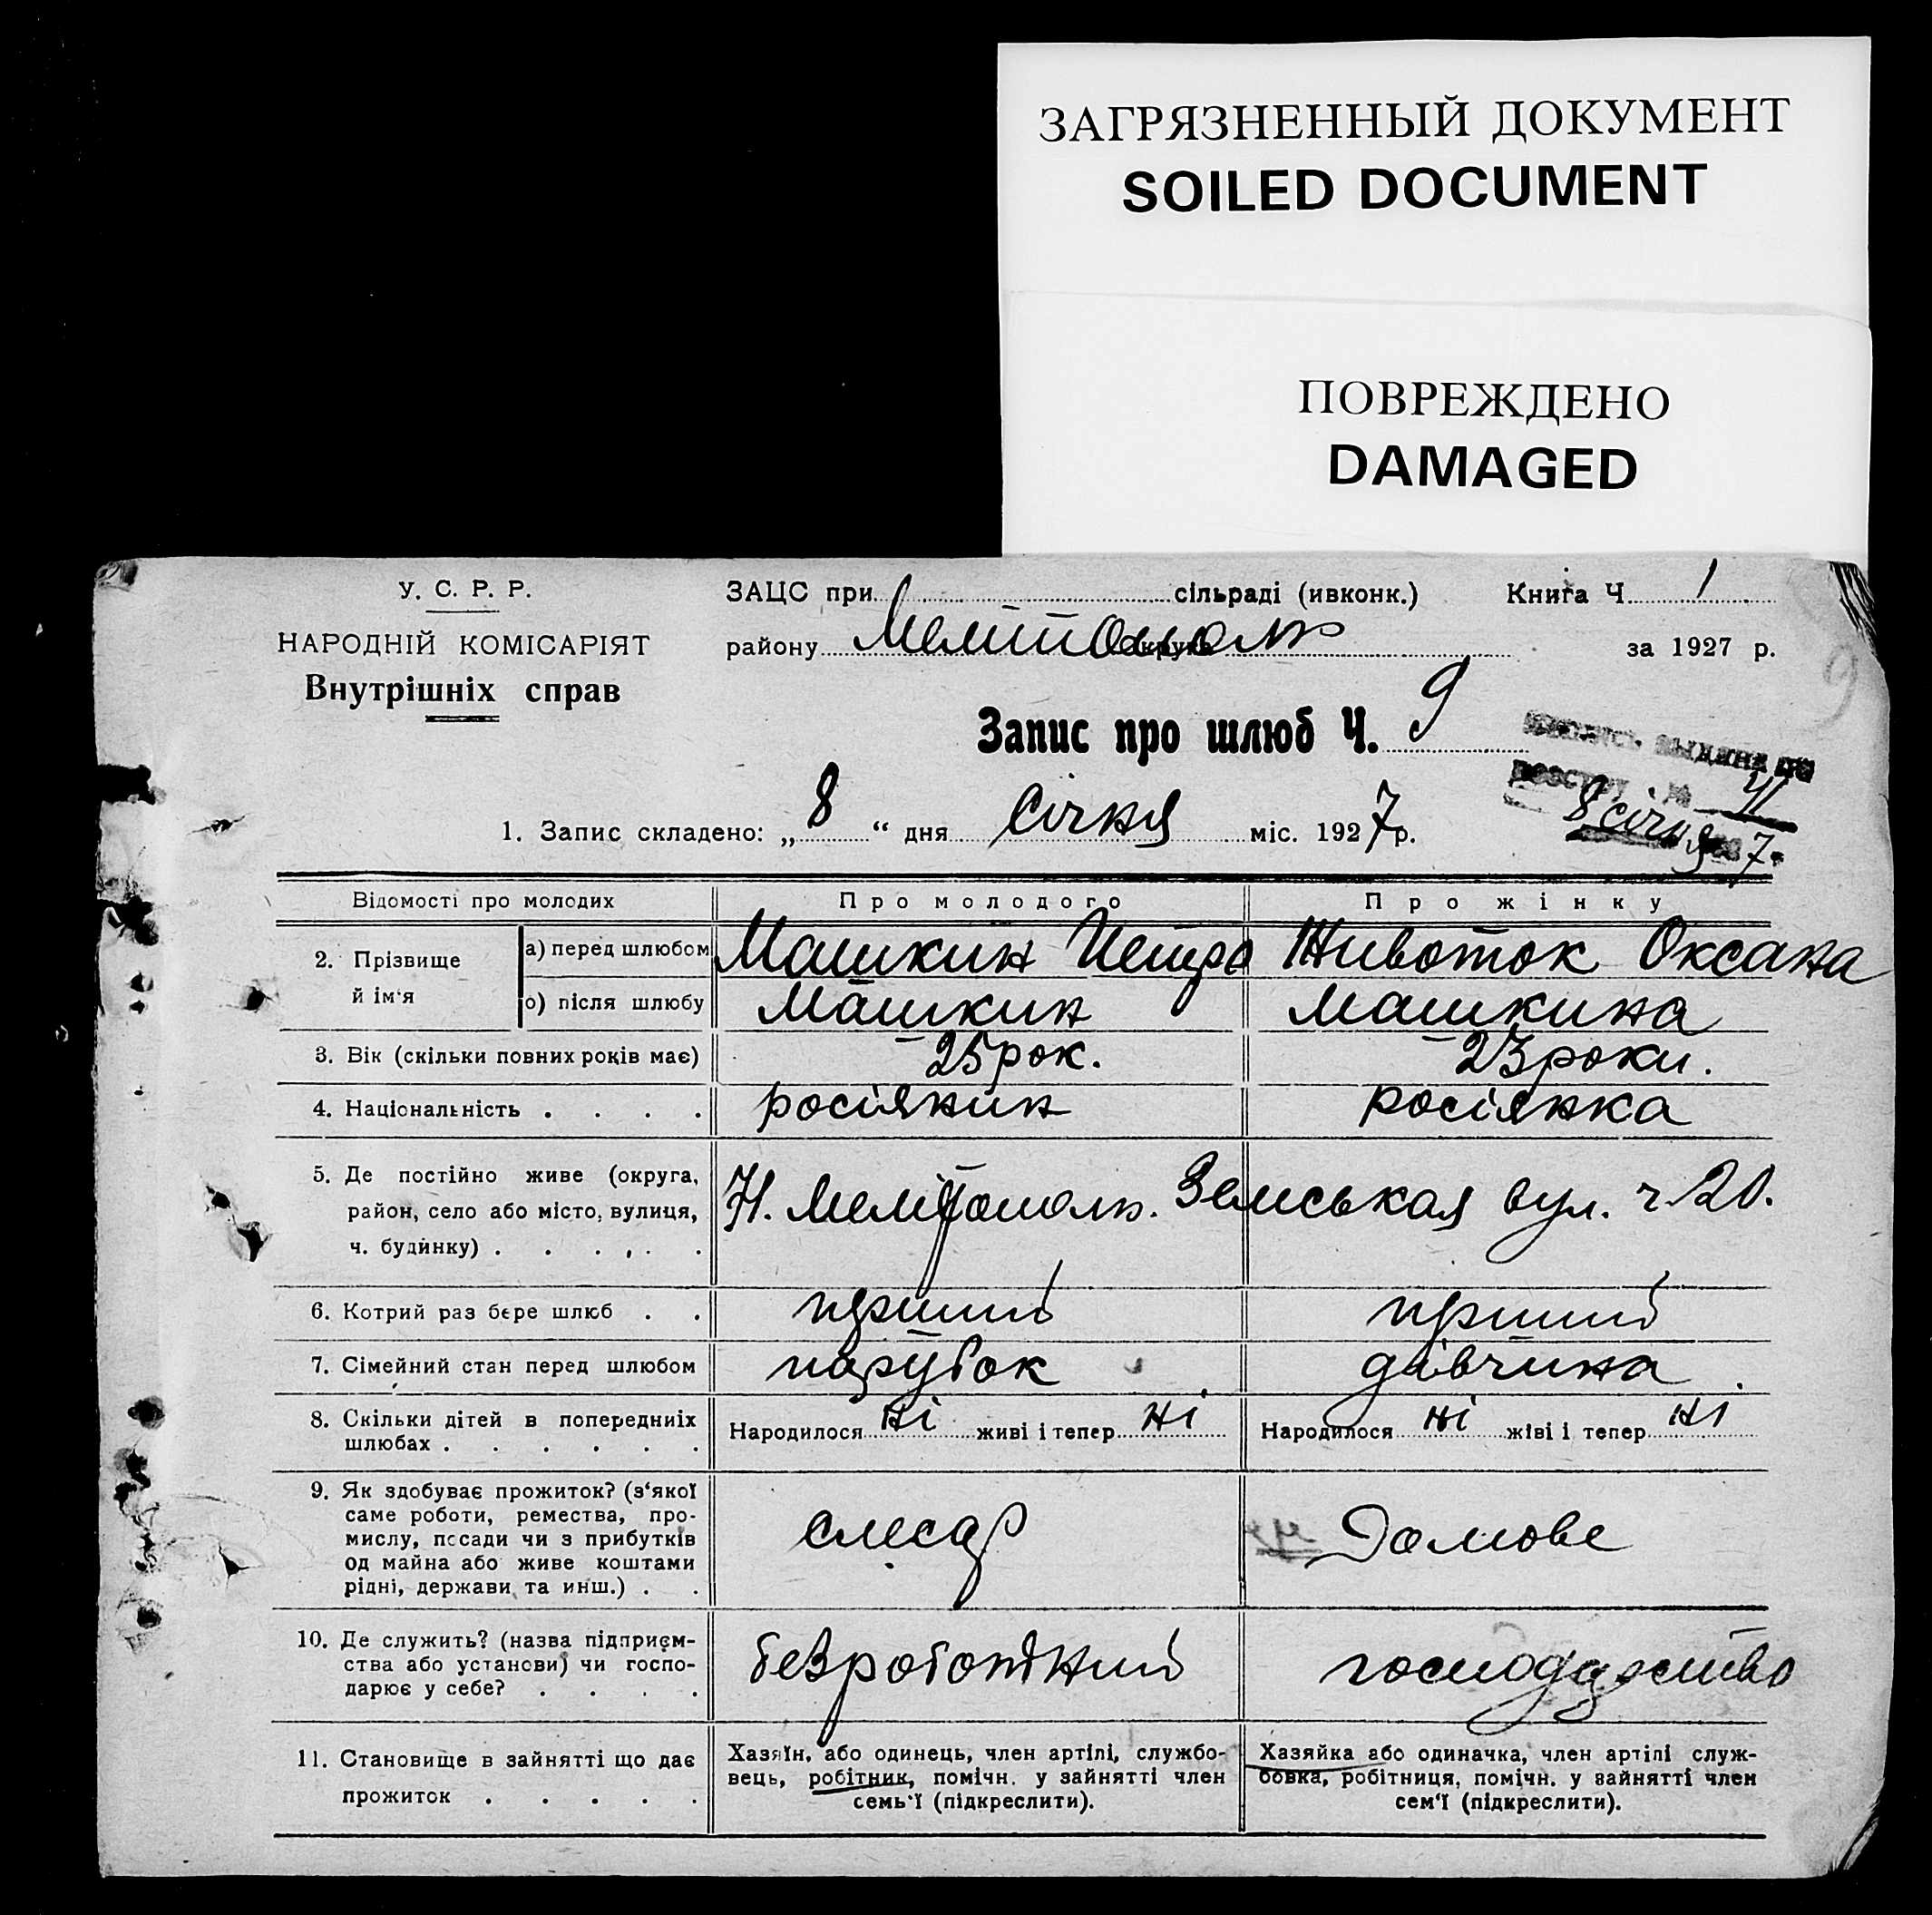 ЗАГРЯЗНЕННЫЙ ДОКУМЕНТ
SOILED DOCUMENT
ПОВРЕЖДЕНО
DAMAGED
У. С. Р. Р.
НАРОДНІЙ КОМІСАРІЯТ
Внутрішніх справ
ЗАЦС при сільраді (ивконк.) Книга Ч. 1
району Мелітополь округи за 1927 р.
9
Запис про шлюб Ч. 9
выдана по
41
8 січня 7.
1. Запис складено: „ 8 “ дня Січня міс. 1927 р.
Відомості про молодих Про молодого Про жінку
2. Прізвище й ім‘я а) перед шлюбом Машкин Петро Животок Оксана
о) після шлюбу Машкин Машкина
3. Вік (скільки повних років має) 25 рок. 23 роки.
4. Національність . . . . росіянин росіянка
5. Де постійно живе (округа,
район, село або місто, вулиця,
ч. будинку) . . . . .
Мелітополь. Земськая вул. ч 20.
6. Котрий раз бере шлюб . . прший прший
7. Сімейний стан перед шлюбом парубок дівчина
8. Скільки дітей в попередниіх
шлюбах . . . . . .
Народилося ні живі і тепер ні Народилося ні жіві і тепер ні
9. Як здобуває прожиток? (з‘якої
саме роботи, ремества, про-
мислу, пссади чи з прибутків
од майна або живе коштами
рідні, держави та инш.) . .
слесар Домове
10. Де служить? (назва підприєм-
ства або установи) чи госпо-
дарює у себе? . . . .
безроботний господарство
11. Становище в зайнятті що дає
прожиток . . . . .
Хазяїн, або одинець, член артілі, службо-
вець, робітник, помічн. у зайнятті член
семь‘ї (підкреслити).
Хазяйка або одиначка, член артілі служ-
бовка, робітниця, помічн. у зайнятті член
сем‘ї (підкреслити).